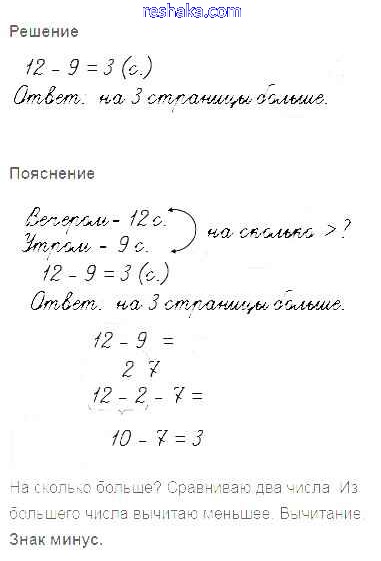 reshaka.com
Решение
12 - 9 = 3 (с.)
Ответ: на 3 страницы больше.
Пояснение
Вечером - 12 с.
Утром - 9 с.
на сколько > ?
12 - 9 = 3 (с.)
Ответ: на 3 страницы больше.
12 - 9 =
2 7
12 - 2 - 7 =
10 - 7 = 3
На сколько больше? Сравниваю два числа. Из
большего числа вычитаю меньшее. Вычитание.
Знак минус.